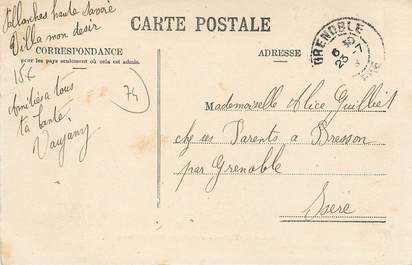 Sallanches haute Savoie
Villa mon desir
15c
Amitiés a tous
ta tante
Vaujany
74
CARTE POSTALE
CORRESPONDANCE
pour les pays seulement où cela est admis.
ADRESSE
GRENOBLE
23 - 7
Mademoiselle Alice Guilliet
chez ses Parents a Bresson
par Grenoble
Isère